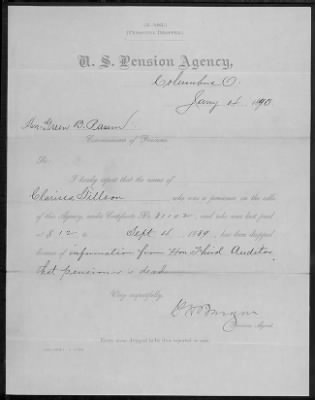 U. S. Pension Agency,
Columbus O.
Jany 4, 1890
Hon Green B. Raum
Commissioner of Pensions.
Sir:
I hereby report that the name of
who was a pensioner on the rolls
of this Agency, under Certificate No. and who was last paid
at $ 12, to Sept 4, 18 has been dropped
because of information from Hon Third Auditor
that pensioner is dead
Very respectfully,
Pension Agent.
Every name dropped to be thus reported at once.